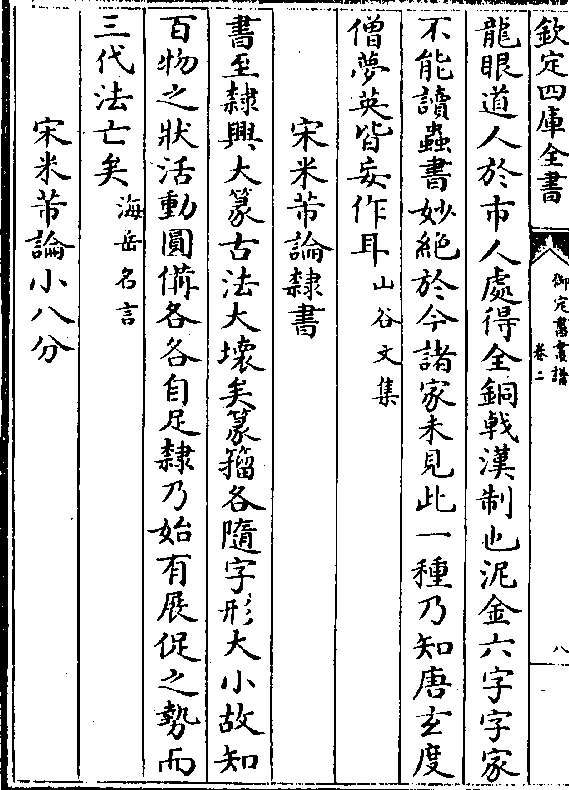 欽定四庫全書
御定書畫譜
卷二
八
龍眼道人於市人處得全銅戟漢制也泥金六字字家
不能讀蟲書妙絶於今諸家未見此一種乃知唐玄度
僧夢英皆妄作耳山谷文集
宋米芾論隸書
書至隸興大篆古法大壞矣篆籀各隨字形大小故知
百物之狀活動圓備各各自足隸乃始有展促之勢而
三代法亡矣海岳名言
宋米芾論小八分